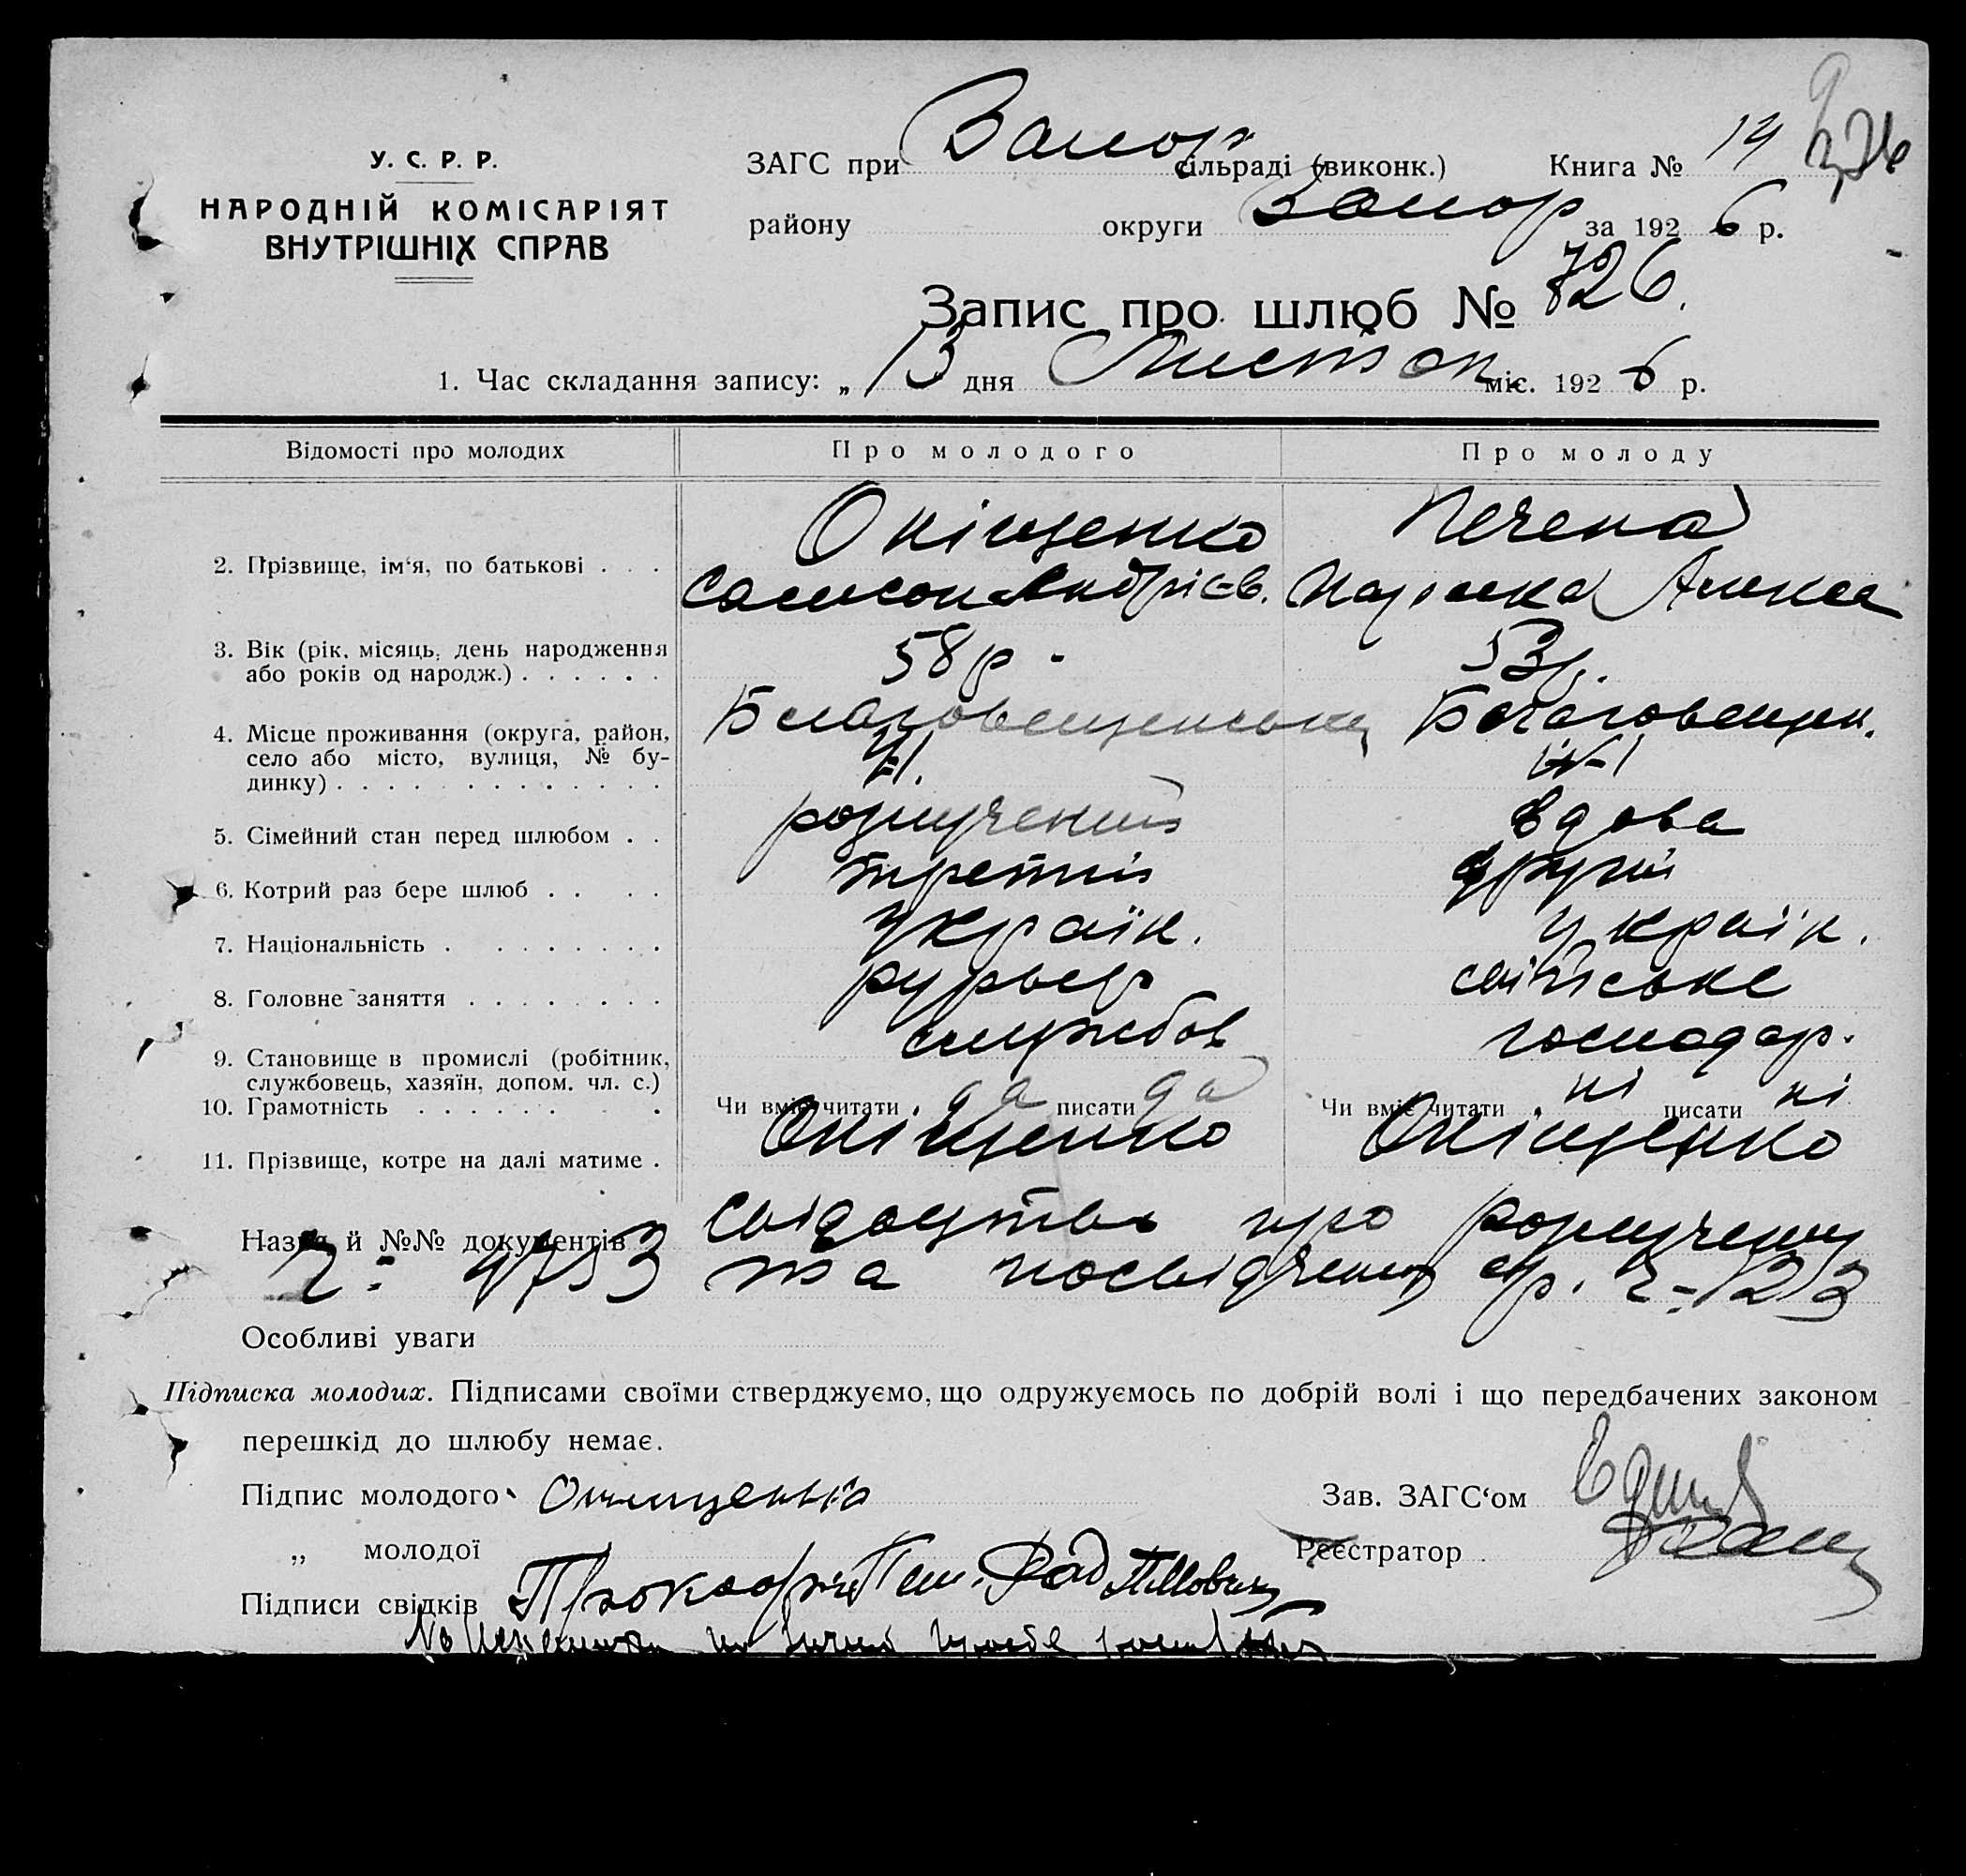 У. С. Р. Р.
НАРОДНІЙ КОМІСАРІЯТ
ВНУТРІШНІХ СПРАВ
ЗАГС при Запор. сільраді (виконк.) Книга № 14
району округи Запор за 1926 р.
Запис про шлюб № 726.
1. Час складання запису: „ 13 дня Листоп. міс. 1926 р.
Відомості про молодих Про молодого Про молоду
2. Прізвище, ім'я, по батькові . . . Оніщенко Печена
Самсон Андрієв.
3. Вік (рік, місяць, день народження
або років од народж.) . . . . . . 58 р. 53 р.
4. Місце проживання (округа, район, Благовещенськ Благовещен.
село або місто, вулиця, № бу-
динку) . . . . . . . . . . . . .
5. Сімейний стан перед шлюбом . . розлучений вдова
6. Котрий раз бере шлюб . . . . третій другий
7. Національність . . . . . . . . україн. україн.
8. Головне заняття . . . . . . . . сільське
9. Становище в промислі (робітник, службов господар.
службовець, хазяїн, допом. чл. с.)
10. Грамотність . . . . . . . Чи вміє читати да писати да Чи вміє читати ні писати ні
11. Прізвище, котре на далі матиме . Оніщенко Оніщенко
Назва й №№ документів свідоцтво про розлучення
та посвідчення
Особливі уваги
Підписка молодих. Підписами своїми стверджуємо, що одружуємось по добрій волі і що передбачених законом
перешкід до шлюбу немає.
Підпис молодого Онищенко Зав. ЗАГС'ом
„ молодої Реєстратор
Підписи свідків